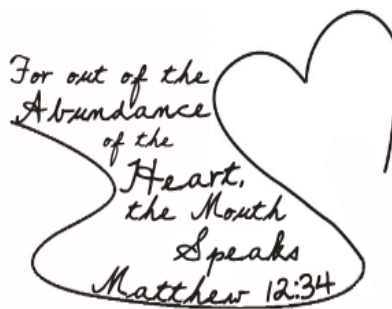 For out of the
Abundance
of the
Heart,
the Mouth
Speaks
Matthew 12:34